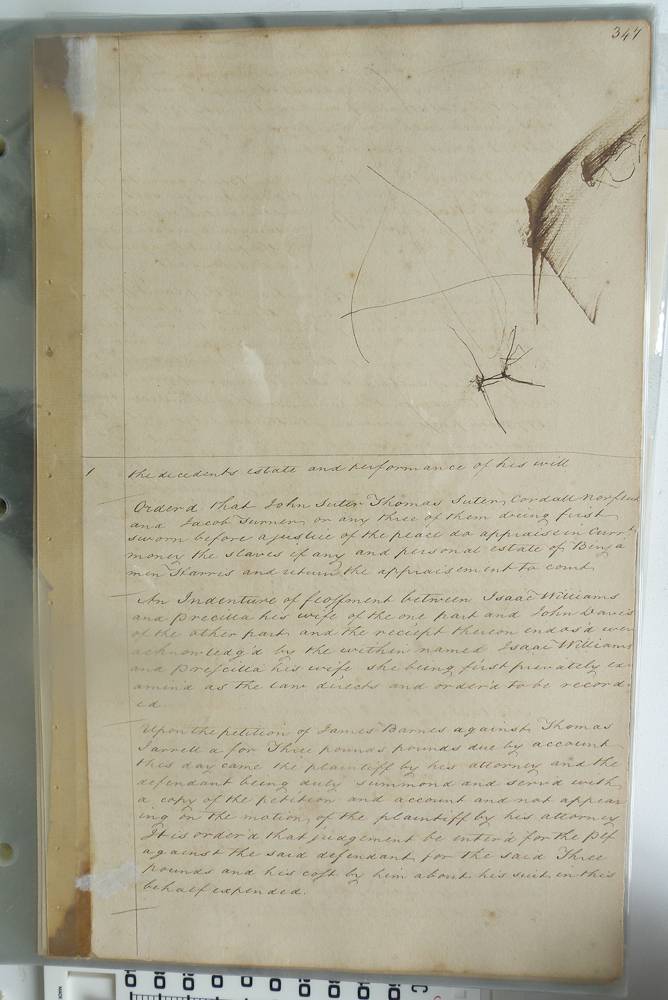 347
1 the decedents estate and performance of his will
Orderd that John Suter Thomas Suter, Cordall Norfleet
and Jacob Turner or any three of them being first
sworn before a justice of the peace do appraise in Currt
money the slaves if any and personal estate of Benja
min Harris and return the appraisement to court
An Indenture of feoffment between Isaac Williams
and Precilla his wife of the one part and John Davis
of the other part and the reciept thereon endos'd were
acknowledg'd by the within named Isaac Williams
and Prescilla his wife she being first privately ex
amin'd as the law directs and order'd to be record
ed
Upon the petition of James Barnes against Thomas
Jarrell a for Three pounds pounds due by account
this day came the plaintiff by his attorney and the
defendant being duly summond and serv'd with
a copy of the petition and account and not appear
ing on the motion of the plaintiff by his attorney
It is order'd that judgement be enter'd for the Plf
against the said defendant for the said Three
pounds and his cost by him about his suit in this
behalf expended.